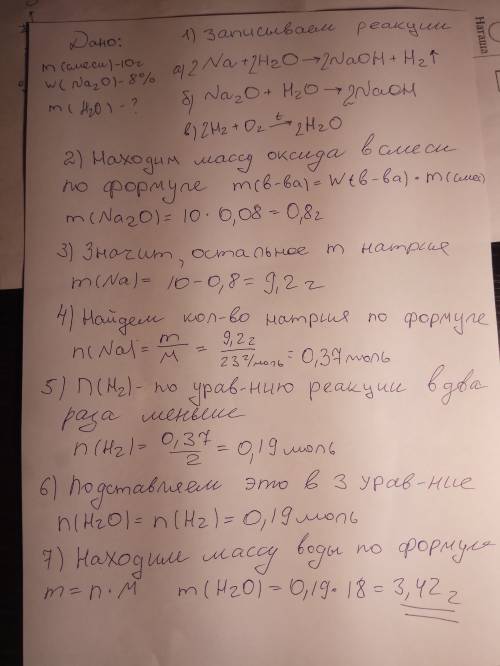 Дано:
m(смеси)-10г
W(Na₂O)-8%
m(H₂O)-?
1) Записываем реакции
а) 2Na+2H₂O→2NaOH+H₂↑
б) Na₂O+H₂O→2NaOH
в) 2H₂+O₂ t→ 2H₂O
2) Находим массу оксида в смеси
по формуле m(в-ва)=W(в-ва)·m(смеси)
m(Na₂O)=10·0,08=0,8г
3) Значит, остальное m натрия
m(Na)= 10-0,8=9,2г
4) Найдем кол-во натрия по формуле
n(Na)= m/M = 9,2г/23г/моль = 0,37моль
5) n(H₂)-по урав-нию реакции в два
раза меньше
n(H₂)= 0,37/2 =0,19моль
6) Подставляем это в 3 урав-ние
n(H₂O)=n(H₂)=0,19моль
7) Находим массу воды по формуле
m=n·M m(H₂O)=0,19·18=3,42г
Наташа